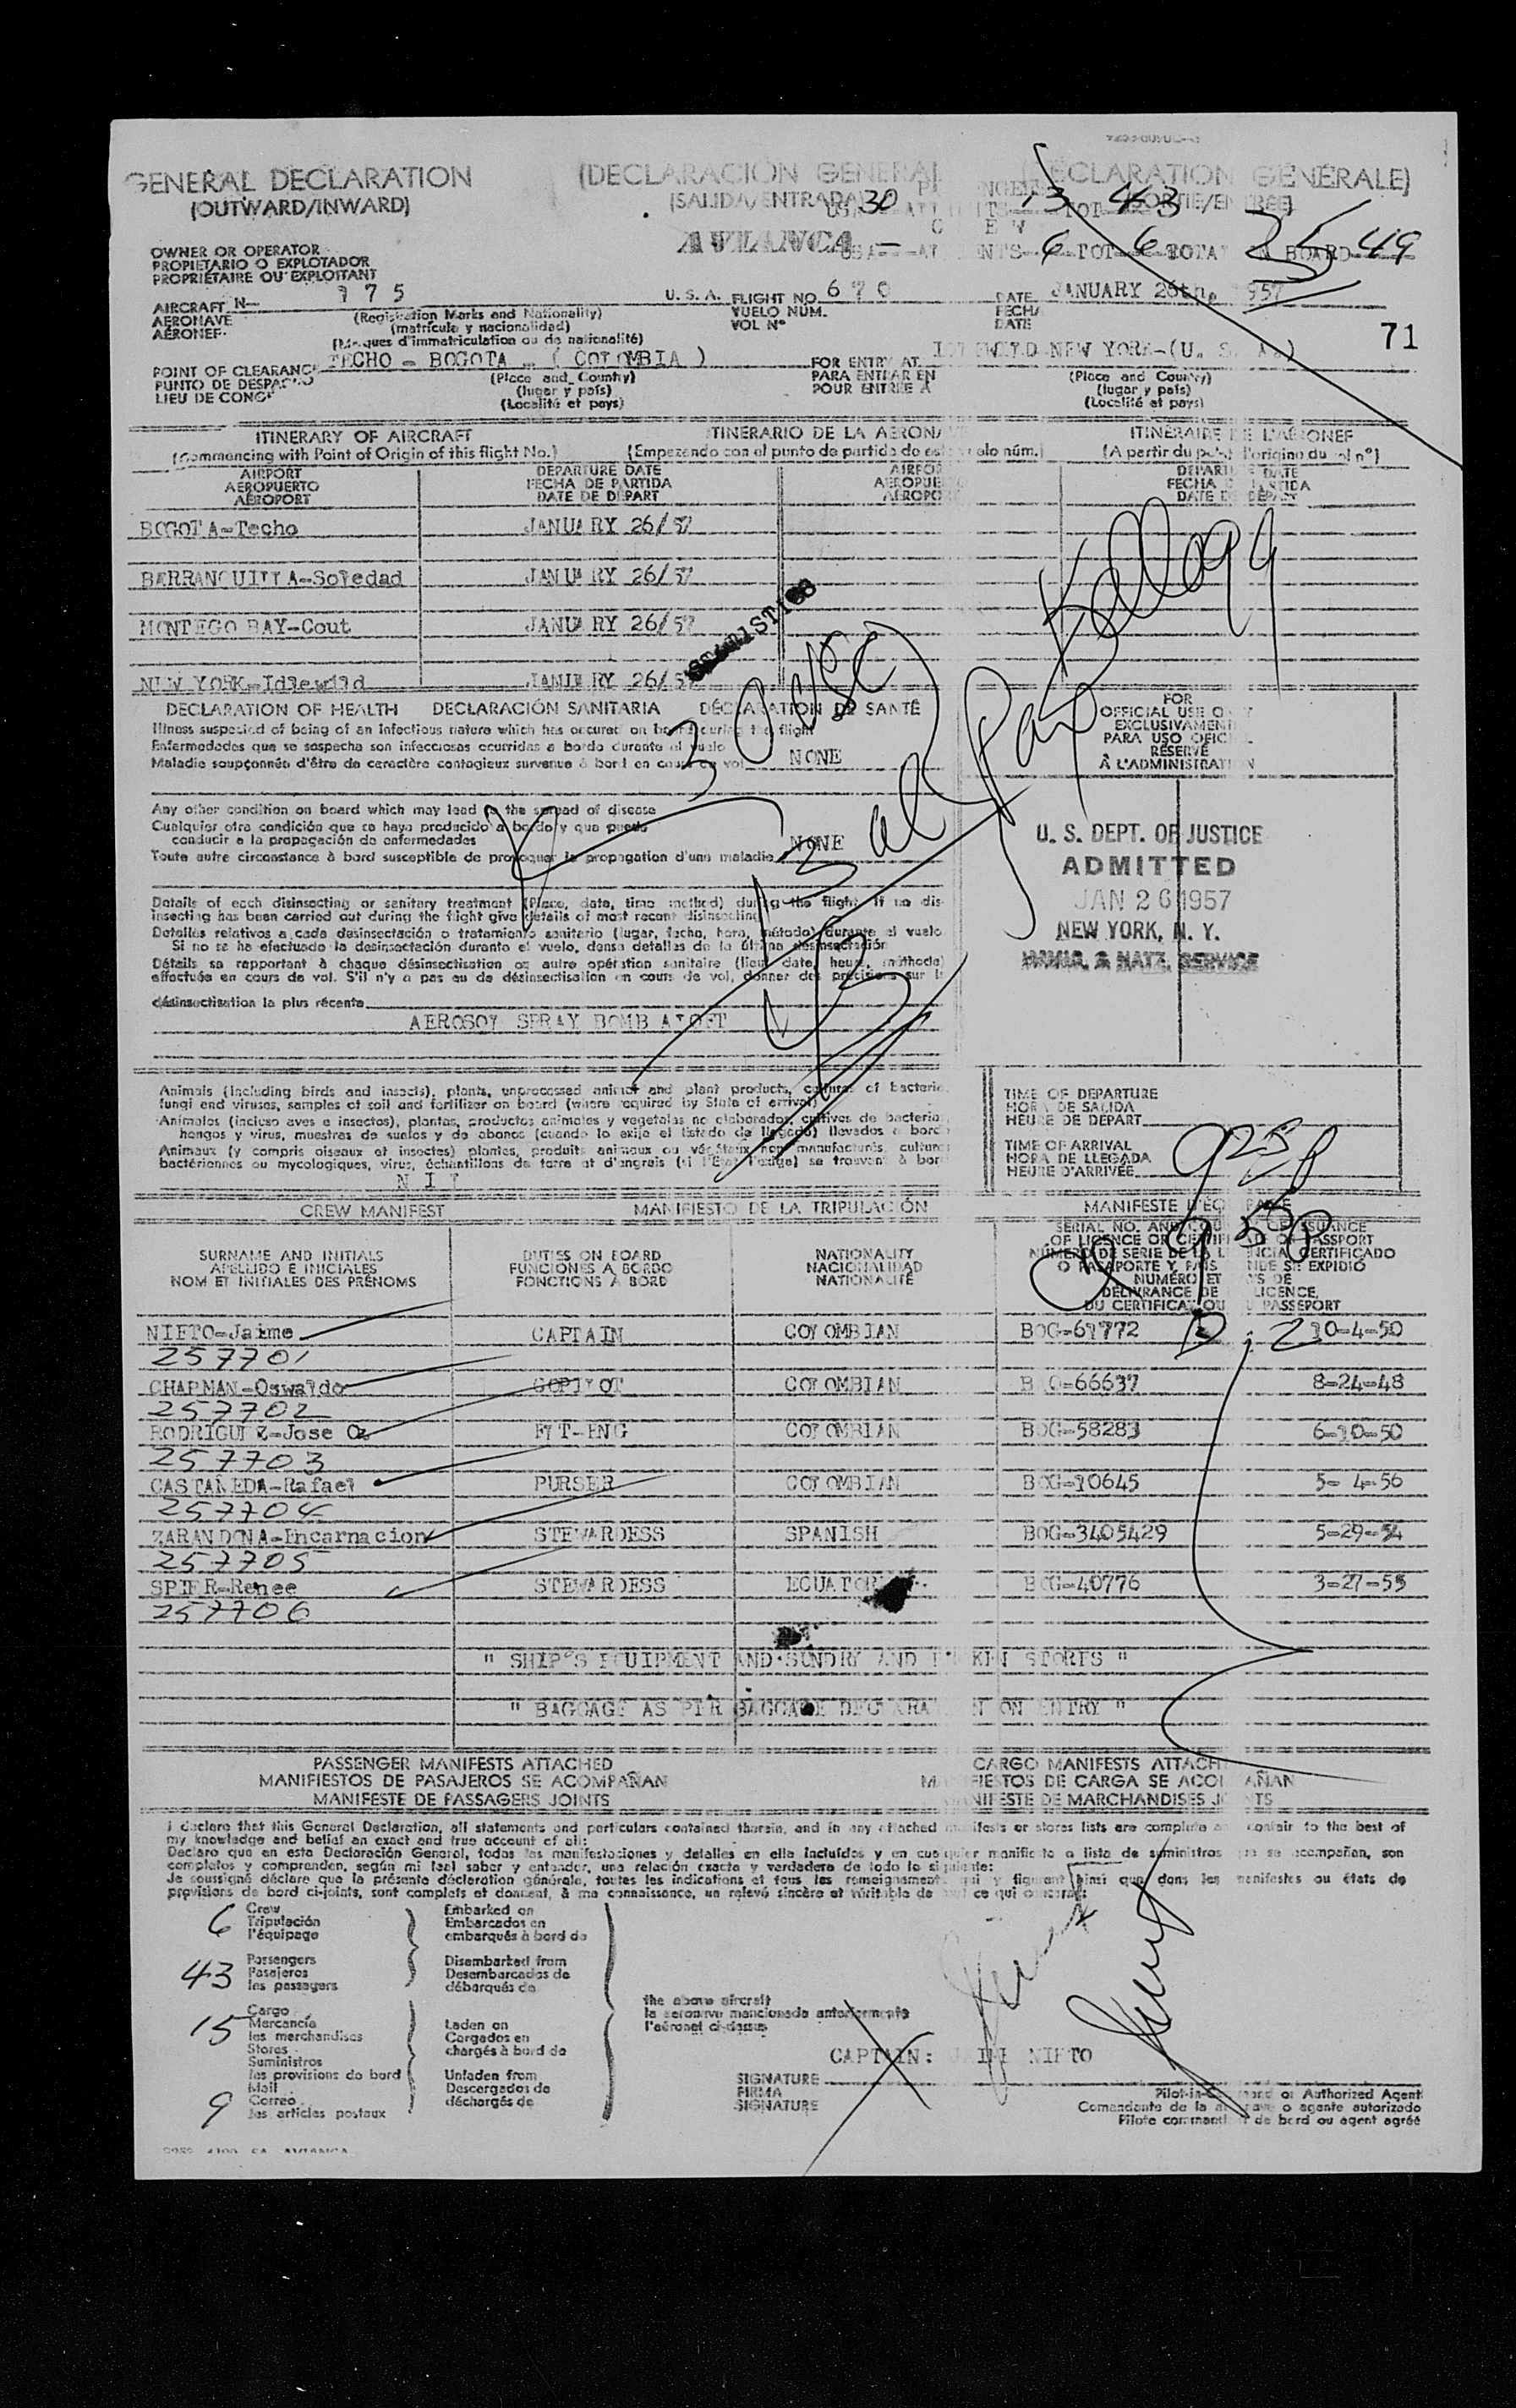 GENERAL DECLARATION
(OUTWARD/INWARD)
(DECLARACIÓN GENERAL
(SALIDA/ENTRADA)
DÉCLARATION GÉNÉRALE)
30 13 TOT 43
AVIANCA
6 TOT 6 TOTAL BOARD 49
OWNER OR OPERATOR
PROPIETARIO O EXPLOTADOR
PROPRIÉTAIRE OU EXPLOITANT
AIRCRAFT N- 175 U. S. A. FLIGHT NO. 670 DATE JANUARY 26th, 1957
AERONAVE VUELO NÚM. FECHA
AÉRONEF VOL Nº DATE
(Registration Marks and Nationality)
(matrícula y nacionalidad)
(Marques d'immatriculation ou de nationalité)
71
POINT OF CLEARANCE TECHO - BOGOTA - ( COLOMBIA ) FOR ENTRY AT IDLEWILD NEW YORK-(U. S. A.)
PUNTO DE DESPACHO PARA ENTRAR EN
LIEU DE CONGÉ POUR ENTRÉE A
(Place and Country) (Place and Country)
(lugar y país) (lugar y país)
(Localité et pays) (Localité et pays)
ITINERARY OF AIRCRAFT ITINERARIO DE LA AERONAVE ITINÉRAIRE DE L'AÉRONEF
(Commencing with Point of Origin of this flight No.) (Empezando con el punto de partida de este vuelo núm.) (A partir du point d'origine du vol nº)
AIRPORT DEPARTURE DATE AIRPORT DEPARTURE DATE
AEROPUERTO FECHA DE PARTIDA AEROPUERTO FECHA DE PARTIDA
AÉROPORT DATE DE DÉPART AÉROPORT DATE DE DÉPART
BOGOTA-Techo JANUARY 26/57
BARRANQUILLA-Soledad JANUARY 26/57
MONTEGO BAY-Cout JANUARY 26/57
NEW YORK-Idlewild JANUARY 26/57
STATISTICS
30 USC
13 al
Pax Kellogg
DECLARATION OF HEALTH DECLARACIÓN SANITARIA DÉCLARATION DE SANTÉ
Illness suspected of being of an infectious nature which has occured on board during the flight
Enfermedades que se sospecha son infecciosas ocurridas a bordo durante el vuelo
Maladie soupçonnée d'être de caractère contagieux survenue à bord en cours de vol NONE
FOR
OFFICIAL USE ONLY
EXCLUSIVAMENTE
PARA USO OFICIAL
RÉSERVÉ
À L'ADMINISTRATION
Any other condition on board which may lead to the spread of disease
Cualquier otra condición que se haya producido a bordo y que pueda
conducir a la propagación de enfermedades
Toute autre circonstance à bord susceptible de provoquer la propagation d'une maladie NONE
U. S. DEPT. OF JUSTICE
ADMITTED
JAN 26 1957
NEW YORK, N. Y.
IMMIG. & NATZ. SERVICE
Details of each disinsecting or sanitary treatment (Place, date, time method) during the flight. If no dis-
insecting has been carried out during the flight give details of most recent disinsecting
Detalles relativos a cada desinsectación o tratamiento sanitario (lugar, fecha, hora, método) durante el vuelo
Si no se ha efectuado la desinsectación durante el vuelo, densa detalles de la última desinsectación
Détails se rapportant à chaque désinsectisation ou autre opération sanitaire (lieu, date, heure, méthode)
effectuée en cours de vol. S'il n'y a pas eu de désinsectisation en cours de vol, donner des précisions sur la
désinsectisation la plus récente
AEROSOL SPRAY BOMB ALOFT
Animals (including birds and insects), plants, unprocessed animal and plant products, cultures of bacteria,
fungi and viruses, samples of soil and fertilizer on board (where required by State of arrival)
Animales (incluso aves e insectos), plantas, productos animales y vegetales no elaborados, cultivos de bacterias,
hongos y virus, muestras de suelos y de abonos (cuando lo exija el Estado de llegada) llevados a bordo
Animaux (y compris oiseaux et insectes) plantes, produits animaux ou végétaux non manufacturés, cultures
bactériennes ou mycologiques, virus, échantillons de terre et d'engrais (si l'État l'exige) se trouvant à bord
N I L
TIME OF DEPARTURE
HORA DE SALIDA
HEURE DE DÉPART
TIME OF ARRIVAL
HORA DE LLEGADA
HEURE D'ARRIVÉE 925p
CREW MANIFEST MANIFIESTO DE LA TRIPULACIÓN MANIFESTE D'ÉQUIPAGE
SURNAME AND INITIALS DUTIES ON BOARD NATIONALITY SERIAL NO. AND COUNTRY OF ISSUANCE
APELLIDO E INICIALES FUNCIONES A BORDO NACIONALIDAD OF LICENCE OR CERTIFICATE OR PASSPORT
NOM ET INITIALES DES PRÉNOMS FONCTIONS A BORD NATIONALITÉ NÚMERO DE SERIE DE LA LICENCIA, CERTIFICADO
O PASAPORTE Y PAÍS DONDE SE EXPIDIÓ
NUMÉRO ET PAYS DE
DÉLIVRANCE DE LICENCE,
DU CERTIFICAT OU PASSEPORT
NIETO-Jaime CAPTAIN COLOMBIAN BOG-61772 10-4-50
257701
CHAPMAN-Oswaldo COPILOT COLOMBIAN BOG-66637 8-24-48
257702
RODRIGUEZ-Jose O. FLT-ENG COLOMBIAN BOG-58283 6-10-50
257703
CASTAÑEDA-Rafael PURSER COLOMBIAN BOG-10645 5- 4-56
257704
ZARANDONA-Incarnacion STEWARDESS SPANISH BOG-3405429 5-29-54
257705
SPIER-Renee STEWARDESS ECUATOR BOG-40776 3-27-55
257706
" SHIP'S EQUIPMENT AND SUNDRY AND BROKEN STORES "
" BAGGAGE AS PER BAGGAGE DECLARATION ON ENTRY "
PASSENGER MANIFESTS ATTACHED CARGO MANIFESTS ATTACHED
MANIFIESTOS DE PASAJEROS SE ACOMPAÑAN MANIFIESTOS DE CARGA SE ACOMPAÑAN
MANIFESTE DE PASSAGERS JOINTS MANIFESTE DE MARCHANDISES JOINTS
I declare that this General Declaration, all statements and particulars contained therein, and in any attached manifests or stores lists are complete and contain to the best of
my knowledge and belief an exact and true account of all:
Declaro que en esta Declaración General, todas las manifestaciones y detalles en ella incluídos y en cualquier manifiesto o lista de suministros que se acompañan, son
completos y comprenden, según mi leal saber y entender, una relación exacta y verdadera de todo lo siguiente:
Je soussigné déclare que la présente déclaration générale, toutes les indications et tous les renseignements qui y figurent ainsi que dans les manifestes ou états de
provisions de bord ci-joints, sont complets et donnent, à ma connaissance, un relevé sincère et véritable de tout ce qui concerne:
6 Crew Embarked on
Tripulación Embarcados en
l'équipage embarqués à bord de
43 Passengers Disembarked from
Pasajeros Desembarcados de
les passagers débarqués de
15 Cargo
Mercancía Laden on
les merchandises Cargados en
Stores chargés à bord de
Suministros
les provisions de bord Unladen from
Mail Descargados de
9 Correo déchargés de
les articles postaux
the above aircraft
la aeronave mencionada anteriormente
l'aéronef ci-dessus
CAPTAIN: JAIME NIETO
SIGNATURE
FIRMA
SIGNATURE
Pilot-in-Command or Authorized Agent
Comandante de la aeronave o agente autorizado
Pilote commandant de bord ou agent agréé